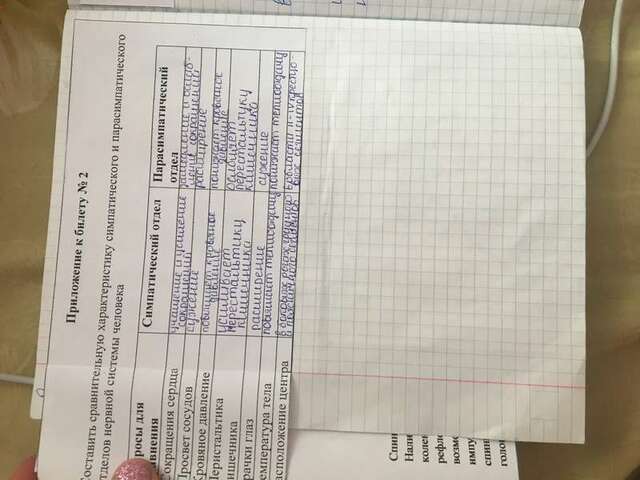 Приложение к билету № 2
Составить сравнительную характеристику симпатического и парасимпатического
отделов нервной системы человека
просы для
авнения
Симпатический отдел
Парасимпатический
отдел
Сокращения сердца
учащение и усиление
сокращений
замедление и ослаб-
ление сокращений
Просвет сосудов
сужение
расширение
Кровяное давление
повышает кровяное
давление
понижает кровяное
давление
Перистальтика
ишечника
усиливает
перестальтику
кишечника
перестальтуку
кишечника
рачки глаз
расширение
сужение
емпература тела
повышает теплоотдачу
понижает теплоотдачу
асположение центра
в области II-IV крестцо
Спин
Нали
колен
рефле
возмо
импу
спин
голо